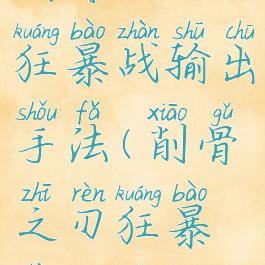 kuáng bào zhàn shū chū
狂暴战输出
shǒu fǎ xiāo gǔ
手法(削骨
zhī rèn kuáng bào
之刃狂暴